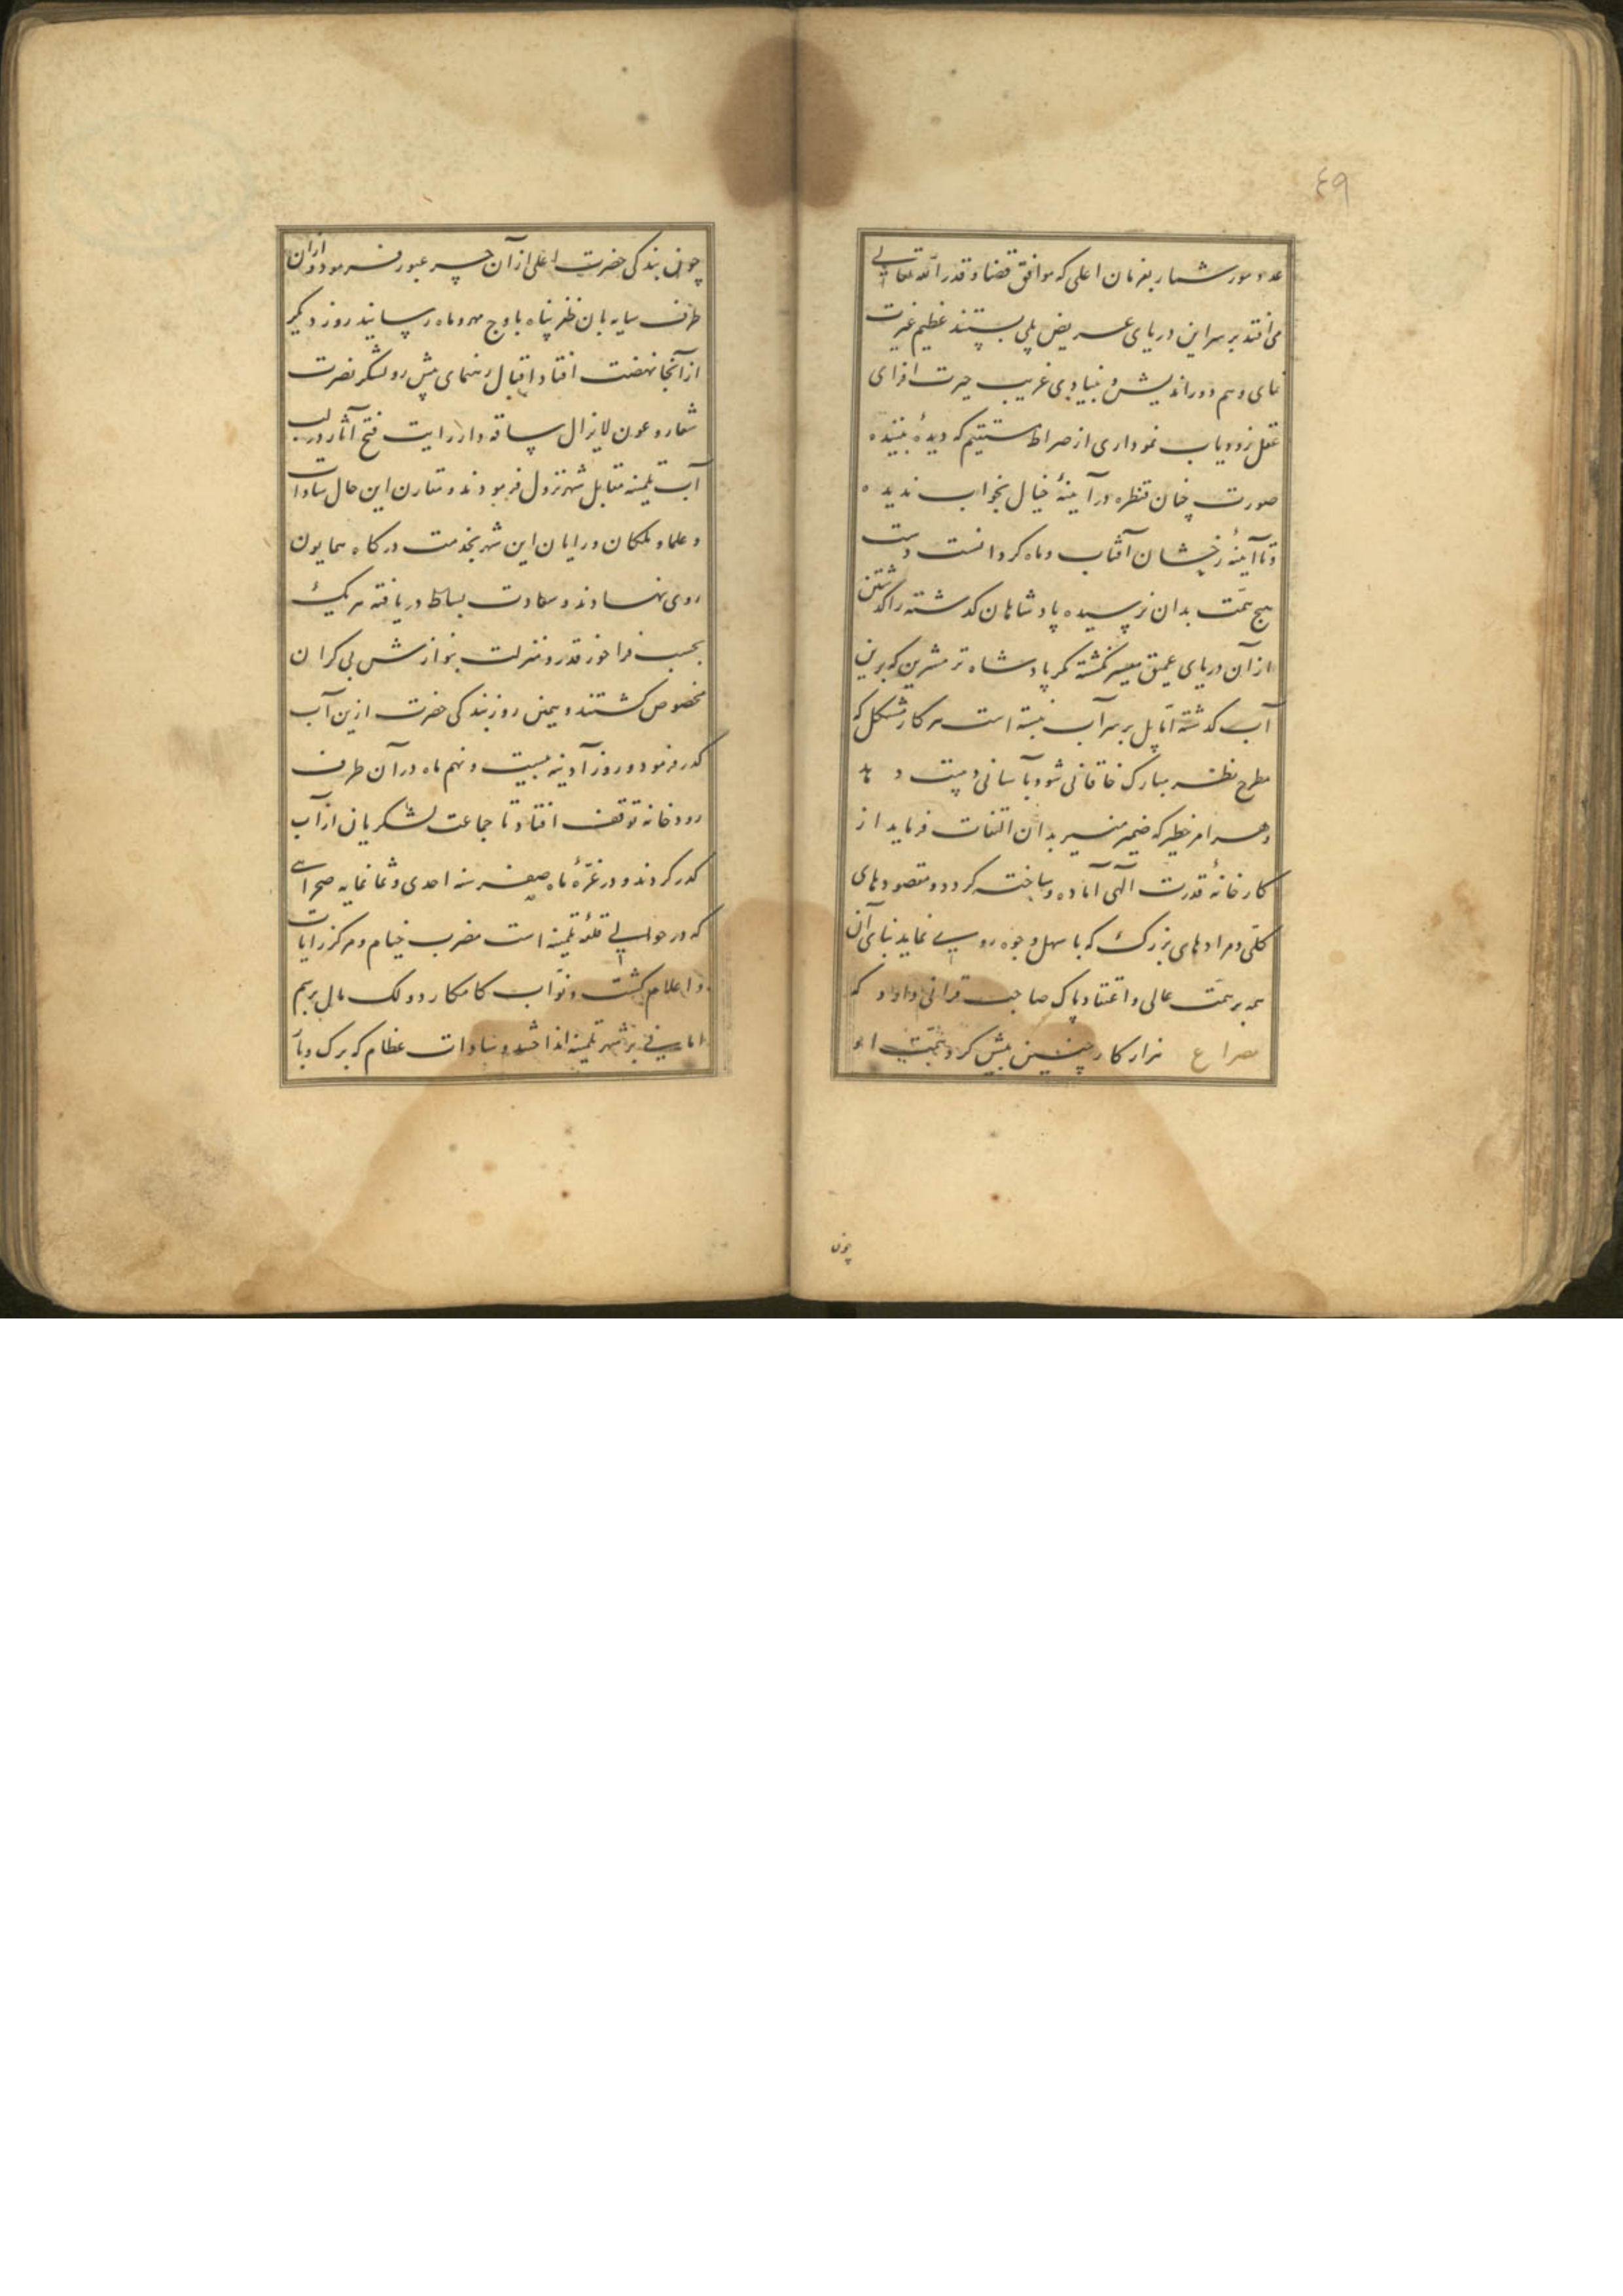 ٤٩
عدد مور شمار بفرمان اعلی که موافق قضا و قدر الله تعالی
می افتد بر سر این دریای عریض پلی بستند عظیم غیرت
نمای وهم دوراندیش و بنیادی غریب حیرت افزای
عقل زودیاب نموداری از صراط مستقیم که دیدهٔ بیننده
صورت چنان قنطره در آینهٔ خیال بخواب ندیده
و تا آینهٔ رخشان آفتاب و ماه کردانست دست
هیچ همّت بدان نرسیده پادشاهان کذشته را کذشتن
از آن دریای عمیق میسر نکشته مکر پادشاه ترمشیرین که برین
آب کذشته امّا پل بر سر آب نبسته است هر کار مشکل که
مطرح نظر مبارک خاقانی شود بآسانی دست دهد
و هر امر خطیر که ضمیر منیر بدان التفات فرماید از
کارخانهٔ قدرت آلهی آماده و ساخته کردد و مقصودهای
کلّی و مرادهای بزرک که باسهل وجوه روی نماید بنای آن
همه بر همّت عالی و اعتقاد پاک صاحب قرانی داد که
مصراع هزار کار چنین بیش کرد همّت او
چون
چون بندکی حضرت اعلی از آن جسر عبور فرمود و از آن
طرف سایه بان ظفر پناه باوج مهر و ماه رسانید روز دیکر
از آنجا نهضت افتاد اقبال رهنمای پیش رو لشکر نصرت
شعار و عون لایزال ساقه دار رایت فتح آثار در لب
آب تلمنه مقابل شهر نزول فرمودند و مقارن این حال سادات
و علما و ملکان و رایان این شهر بخدمت درکاه همایون
روی نهادند و سعادت بساط دریافته هر یک
بحسب فراخور قدر و منزلت بنوازش بی کران
مخصوص کشتند و همین روز بندکی حضرت ازین آب
کذر فرمود و روز آدینه بیست و نهم ماه در آن طرف
رودخانه توقف افتاد تا جماعت لشکریان از آب
کذر کردند و در غرّهٔ ماه صفر سنه احدی و ثمانمایه صحرای
که در حوالی قلعهٔ تلمنه است مضرب خیام و مرکز رایات
و اعلام کشت و نوّاب کامکار دو لک مال برسم
امانی بر شهر تلمنه انداختند و سادات عظام که برک دیا